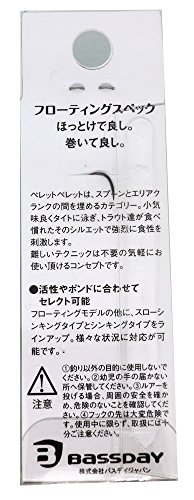 フローティングスペック
ほっとけで良し。
巻いて良し。
ペレットペレットは、スプーンとエリアク
ランクの間を埋めるカテゴリー。小気
味良くタイトに泳ぎ、トラウト達が食べ
慣れたそのシルエットで強烈に食性を
刺激します。
難しいテクニックは不要の気軽にお
使い頂けるコンセプトです。
●活性やポンドに合わせて
セレクト可能
フローティングモデルの他に、スローシ
ンキングタイプとシンキングタイプをラ
インアップ。様々な状況に対応が可
能です.
注意
①釣り以外の目的に使用しない
でください②幼児の手の届かない
所へ保管してください。③ルアーを
投げる場合、周囲の安全を確か
め、危険のないことを確認してくださ
い。④フックの先は大変危険で
す。使用中に限らず、取扱いには
十分注意してください。
BASSDAY
株式会社バスデイジャパン